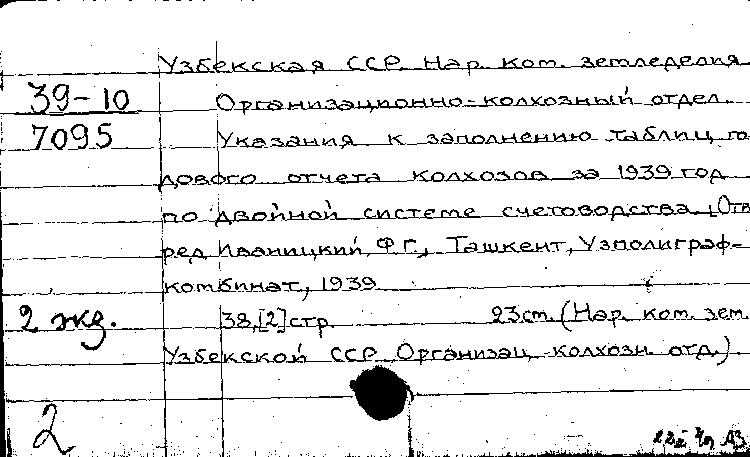 Узбекская ССР. Нар. ком. земледелия
39-10 Организационно-колхозный отдел.
7095 Указания к заполнению таблиц го
дового отчета колхозов за 1939 год
по двойной системе счетоводства. [Отв
ред. Иваницкий, Ф.Г., Ташкент, Узполиграф-
комбинат, 1939
2 экз. 38,[2]стр. 23см. (Нар. ком. зем.
Узбекской ССР. Организац.-колхозн. отд.)
2